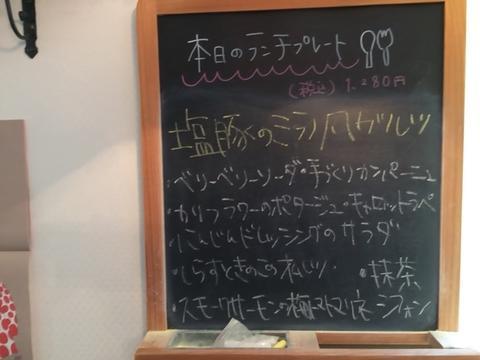 本日のランチプレート
(税込) 1,280円
塩豚のミラノ風カツレツ
・ベリーベリーソーダ・手づくりカンパーニュ
・カリフラワーのポタージュ・キャロットラペ
・にんじんドレッシングのサラダ
・しらすときのこの和じゅん ・抹茶
・スモークサーモンの梅トマトマリネ シフォン